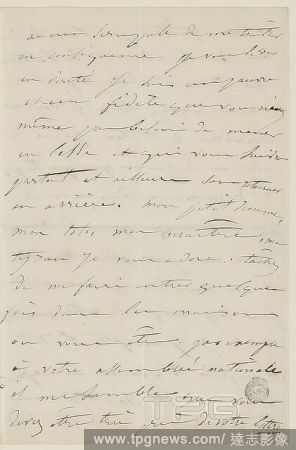 aucun scrupule de me traiter
en conséquence. Je vous le dis
en vérité je suis un pauvre
chien fidèle que vous n'avez
même pas besoin de mener
en laisse et qui vous suivra
partout et ailleurs sans retourner
en arrière. mon petit homme,
mon toto, mon maître, mon
tyran je vous adore. tâchez
de me faire entrer quelque
fois dans les maisons
où vous êtes par exemple
à votre assemblée nationale
il me semble que vous
devez être très près de votre
TPG
www.tpgnews.com / 達志影像